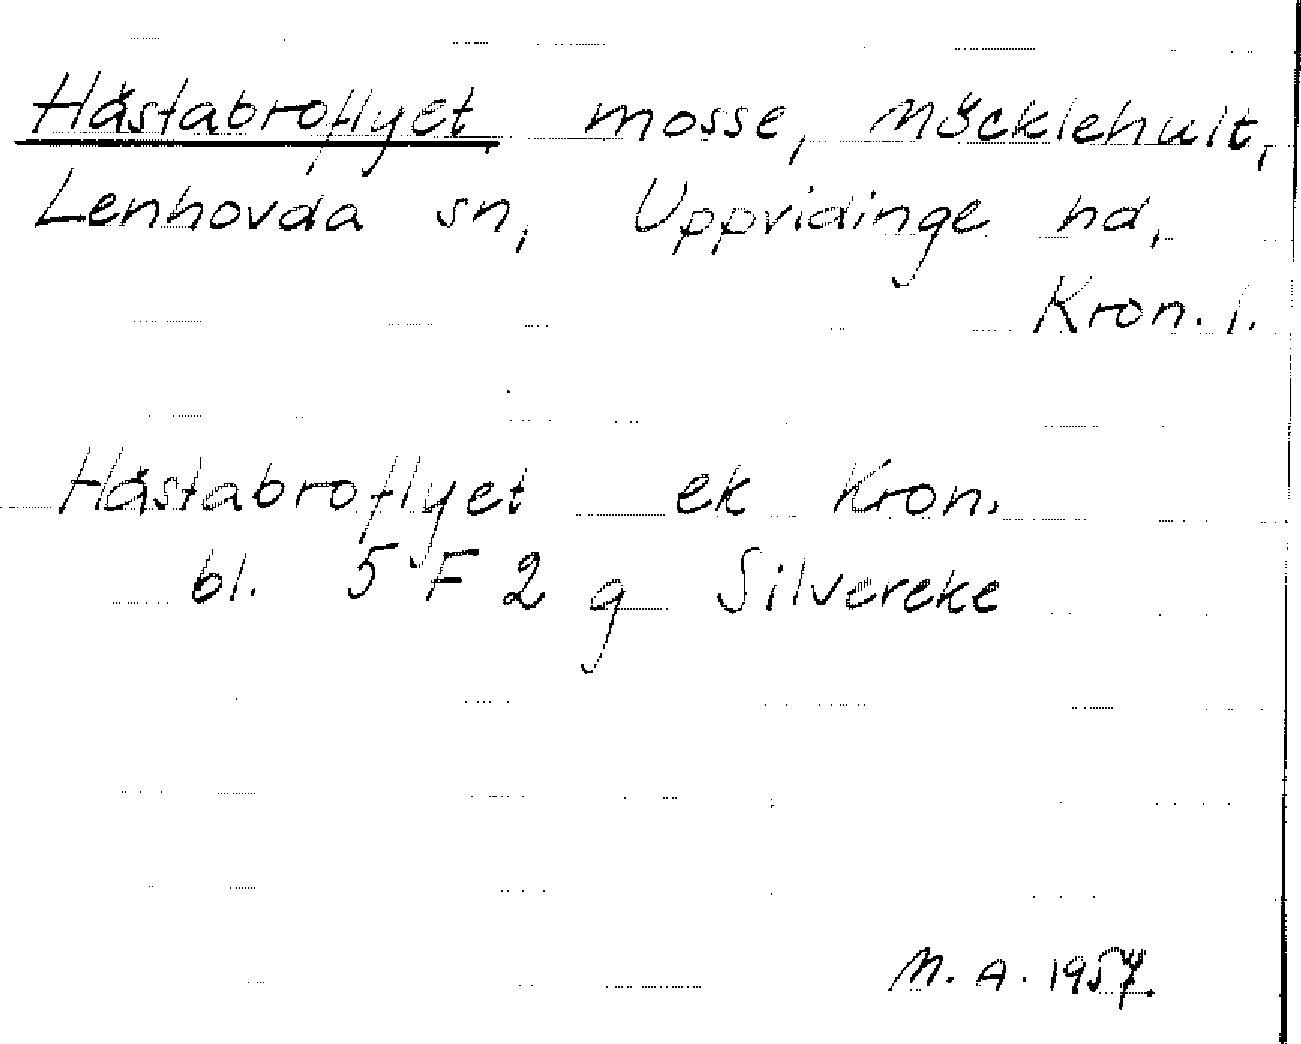 Hästabroflyet mosse, Möcklehult,
Lenhovda sn, Uppvidinge hd,
Kron. l.
Hästabroflyet ek Kron.
bl. 5 F 2 g Silvereke
M. A. 1957.